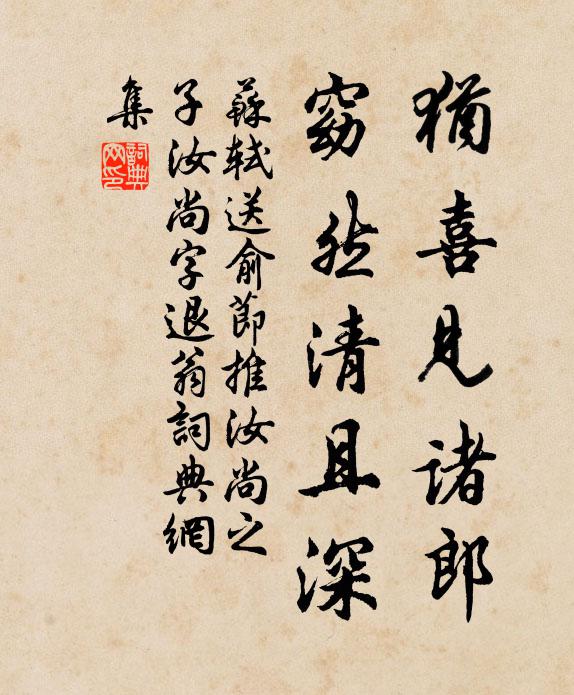 猶喜見诸郎
窈然清且深
蘇軾送俞節推汝尚之
子汝尚字退翁詞典網
集
詞典
网印